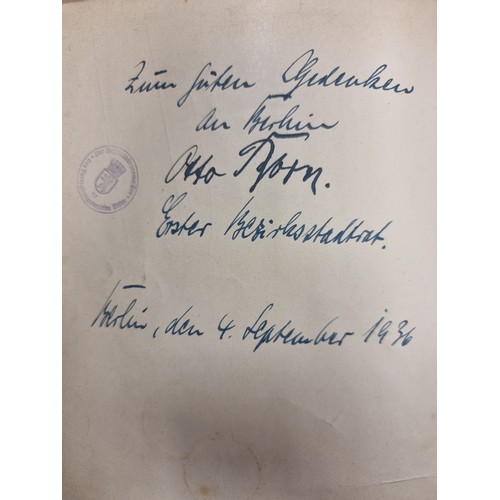 Zum guten Gedenken
an Berlin
Otto
Erster Bezirksstadtrat.
Berlin, den 4. September 1936